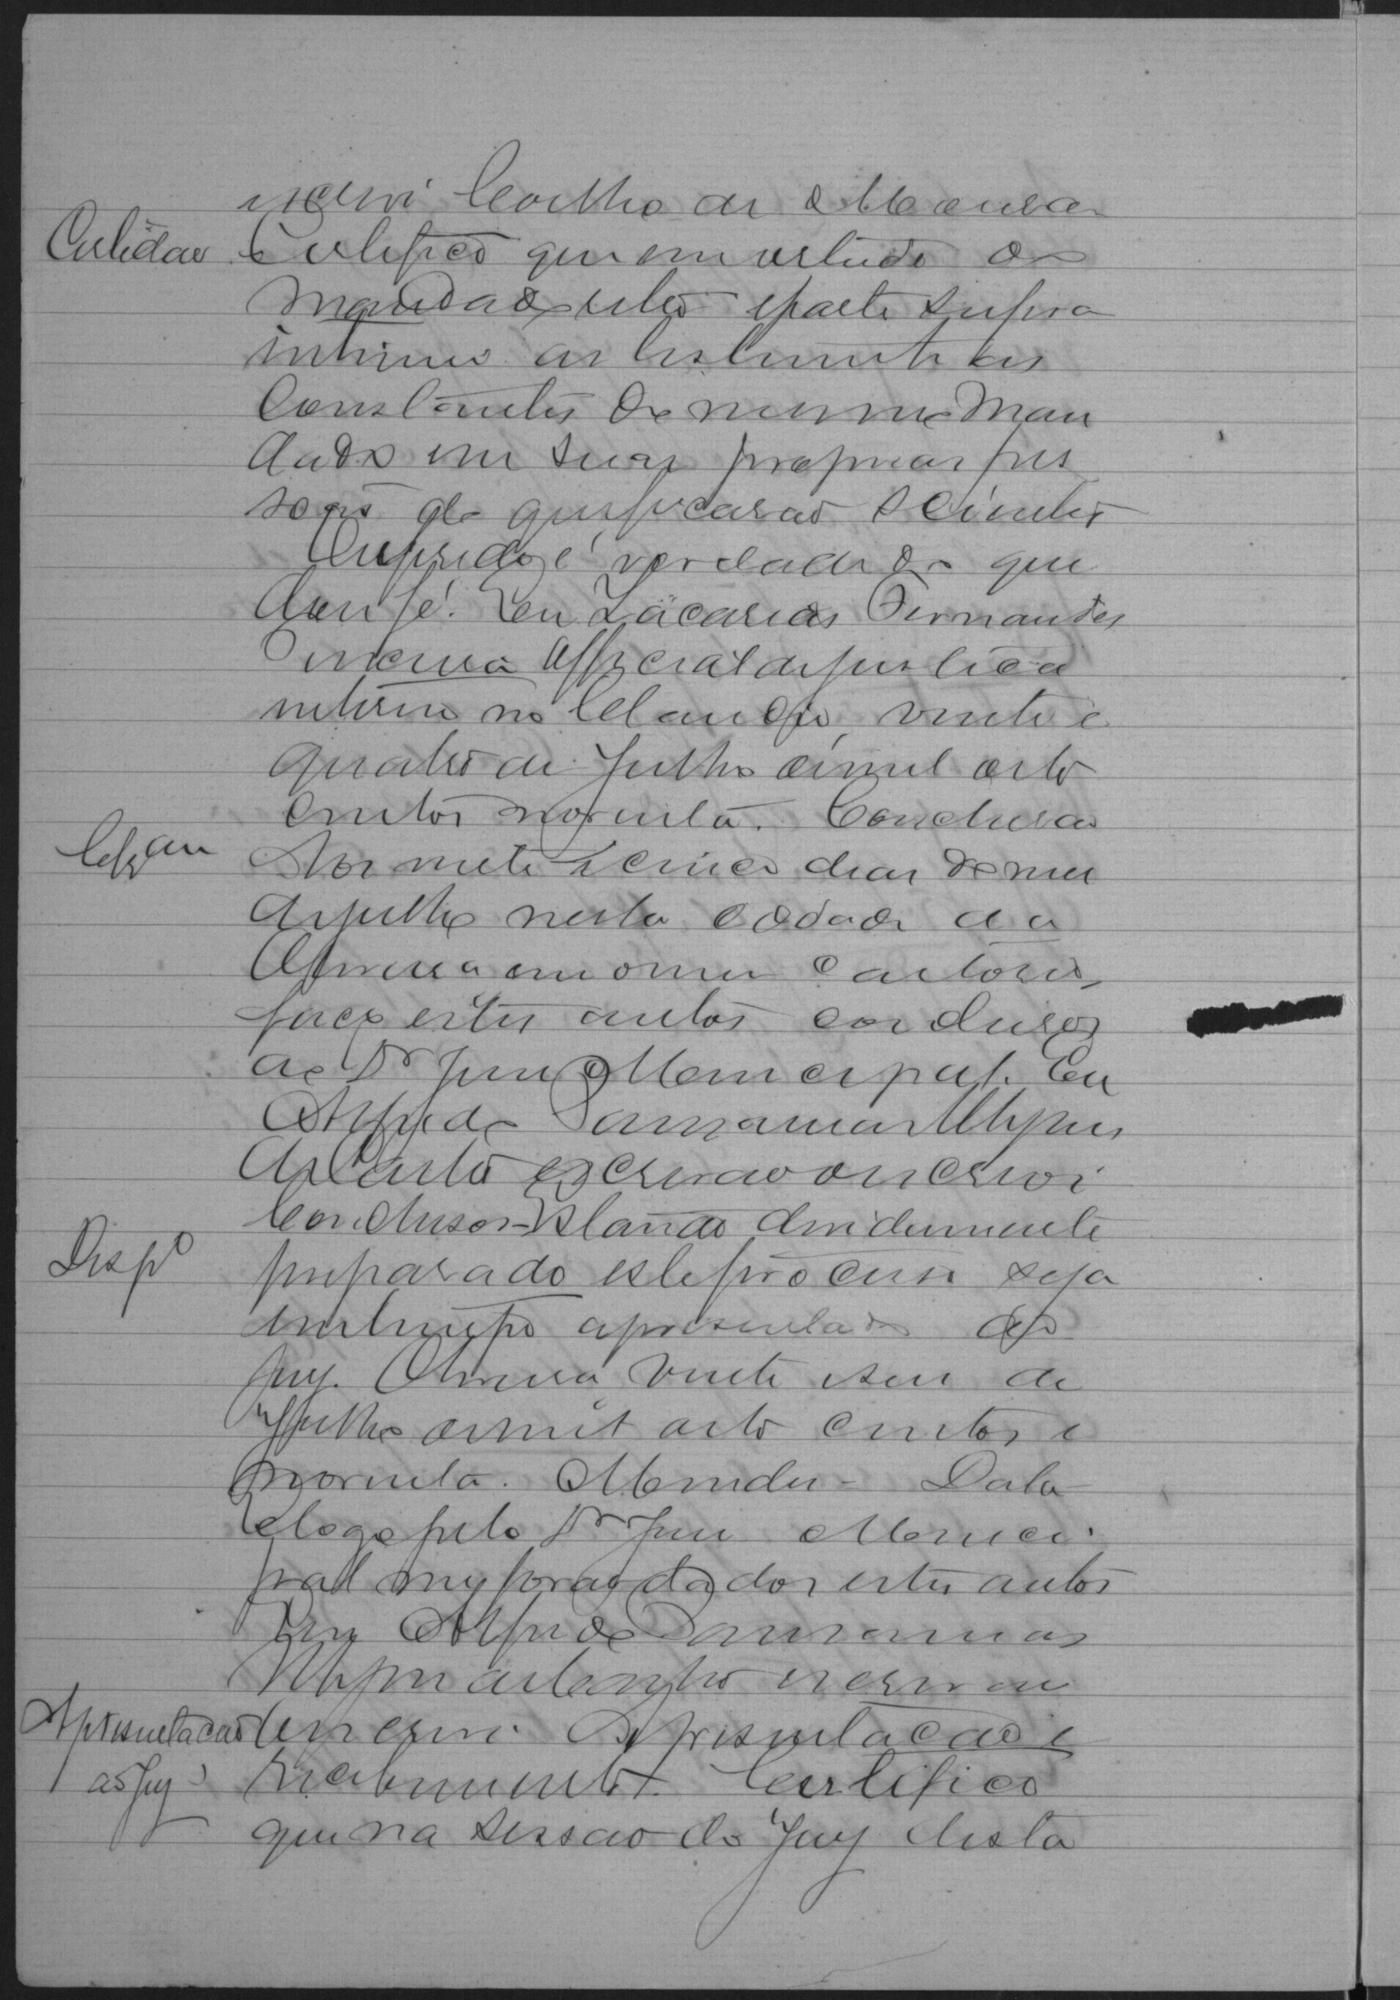 escrevi Coelho de Moura
Certidão Certifico que em virtude do
mandado retro e parte supra
intimei as testemunhas
Constantes do mesmo Man
dado em suas proprias pes
soas do que ficarão scientes
O referido é verdade do que
dou fé. Eu Zacarias Fernandes
official de justica
interino no vinte e
quatro de Julho de mil oito
centos noventa. Conclusão
Clzam Aos vinte e cinco dias do mes
de julho nesta cidade da
em o meu cartorio,
faço estes autos conclusos
ao Dr Juiz Municipal. Eu
Alfredo
escrivão o escrevi
Conclusos - Estando devidamente
Despo preparado este processo seja
em tempo apresentado ao
Jury. vinte e seis de
Julho de mil oito centos e
noventa. Mendes - Data
E logo pelo Dr Juiz Munici
pal me forão dados estes autos
Eu Alfredo
escrivão
Apresentacão o escrevi. Apresentacão e
ao Jury Recebimento. Certifico
que na sessão do Jury desta